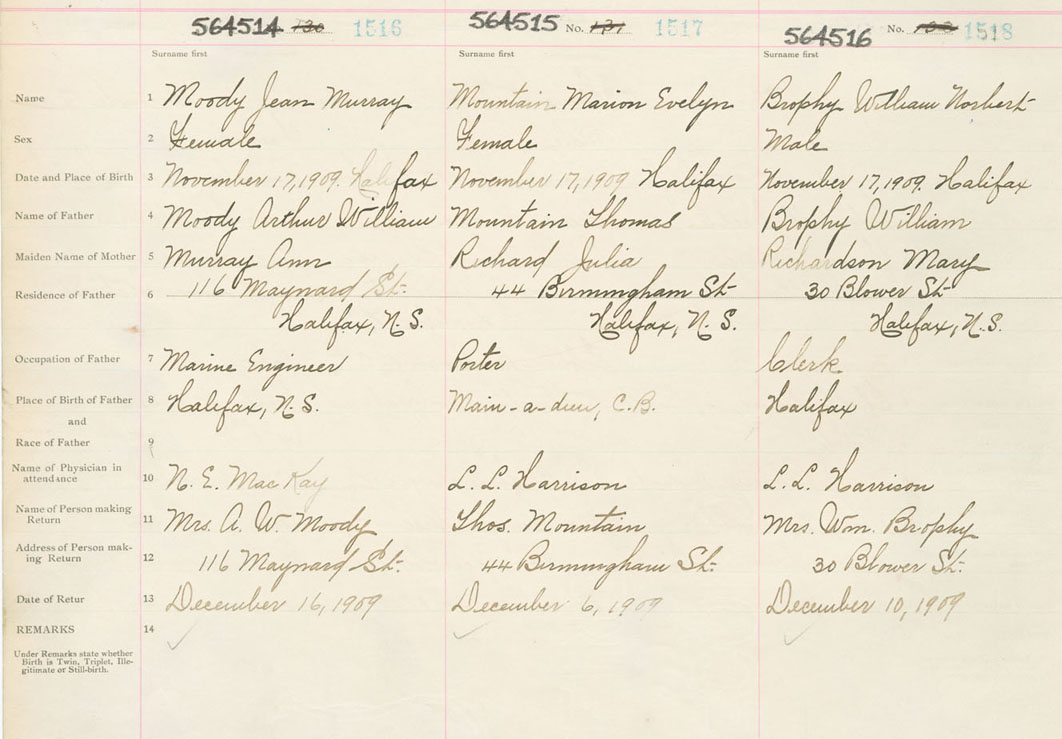 564514 130 1516 564515 No. 131 1517 564516 No. 132 1518
Surname first Surname first Surname first
Name 1 Moody Jean Murray Mountain Marion Evelyn Brophy William Norbert
Sex 2 Female Female Male
Date and Place of Birth 3 November 17, 1909. Halifax November 17, 1909 Halifax November 17, 1909. Halifax
Name of Father 4 Moody Arthur William Mountain Thomas Brophy William
Maiden Name of Mother 5 Murray Ann Richard Julia Richardson Mary
Residence of Father 6 116 Maynard St. 44 Birmingham St. 30 Blower St.
Halifax, N.S. Halifax, N.S. Halifax, N.S.
Occupation of Father 7 Marine Engineer Porter Clerk
Place of Birth of Father 8 Halifax, N.S. Main-a-dieu, C.B. Halifax
and
Race of Father 9
Name of Physician in attendance 10 N. E. MacKay L. L. Harrison L. L. Harrison
Name of Person making Return 11 Mrs. A. W. Moody Thos. Mountain Mrs. Wm. Brophy
Address of Person mak-
ing Return 12 116 Maynard St. 44 Birmingham St. 30 Blower St.
Date of Retur 13 December 16, 1909 December 6, 1909 December 10, 1909
REMARKS 14
Under Remarks state whether
Birth is Twin, Triplet, Ille-
gitimate or Still-birth.